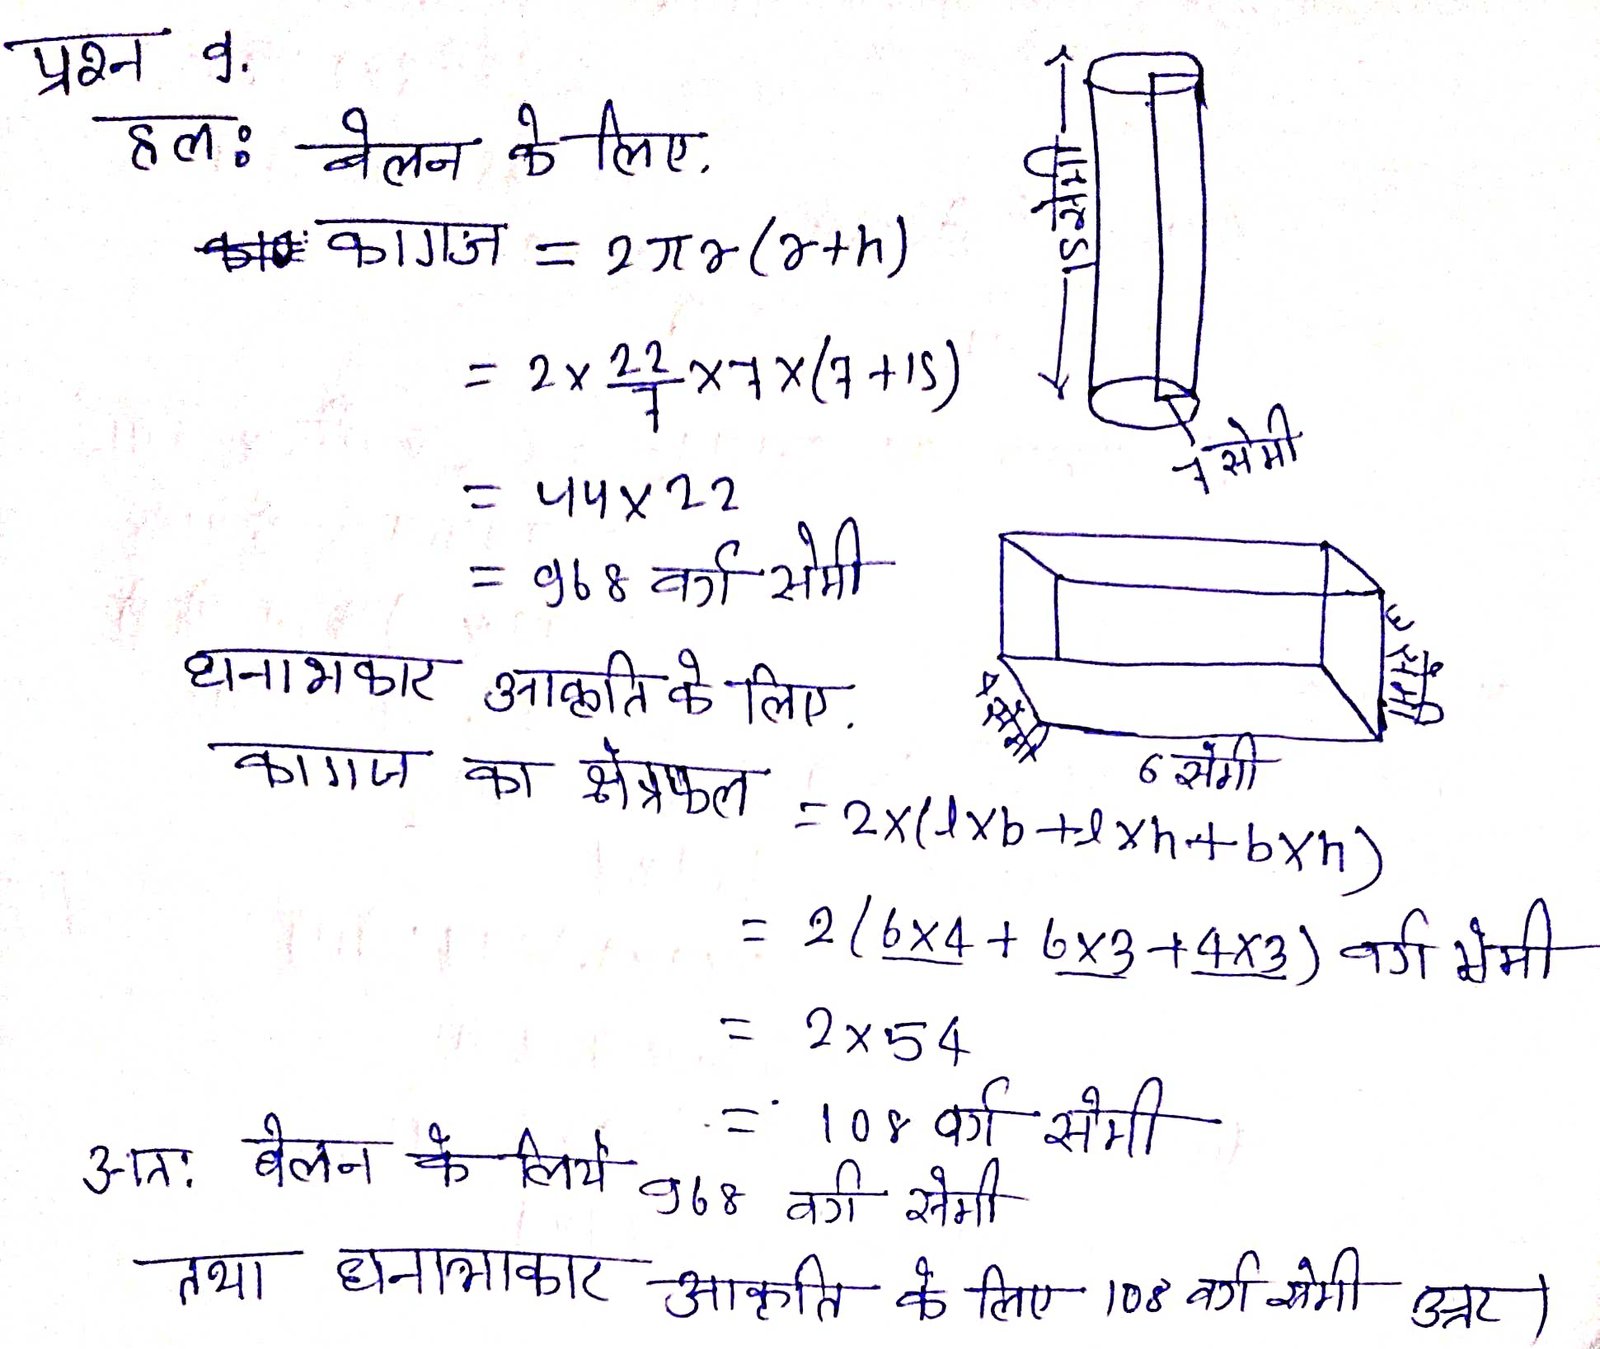 प्रश्न 9.
हलः बेलन के लिए.
कागज = 2πr(r+h)
= 2 × 22/7 × 7 × (7 + 15)
= 44 × 22
= 968 वर्ग सेमी
15 सेमी
7 सेमी
घनाभकार आकृति के लिए.
3 सेमी
4 सेमी
6 सेमी
कागज का क्षेत्रफल = 2×(l×b + l×h + b×h)
= 2(6×4 + 6×3 + 4×3) वर्ग सेमी
= 2×54
= 108 वर्ग सेमी
अतः बेलन के लिये 968 वर्ग सेमी
तथा घनाभाकार आकृति के लिए 108 वर्ग सेमी उत्तर।